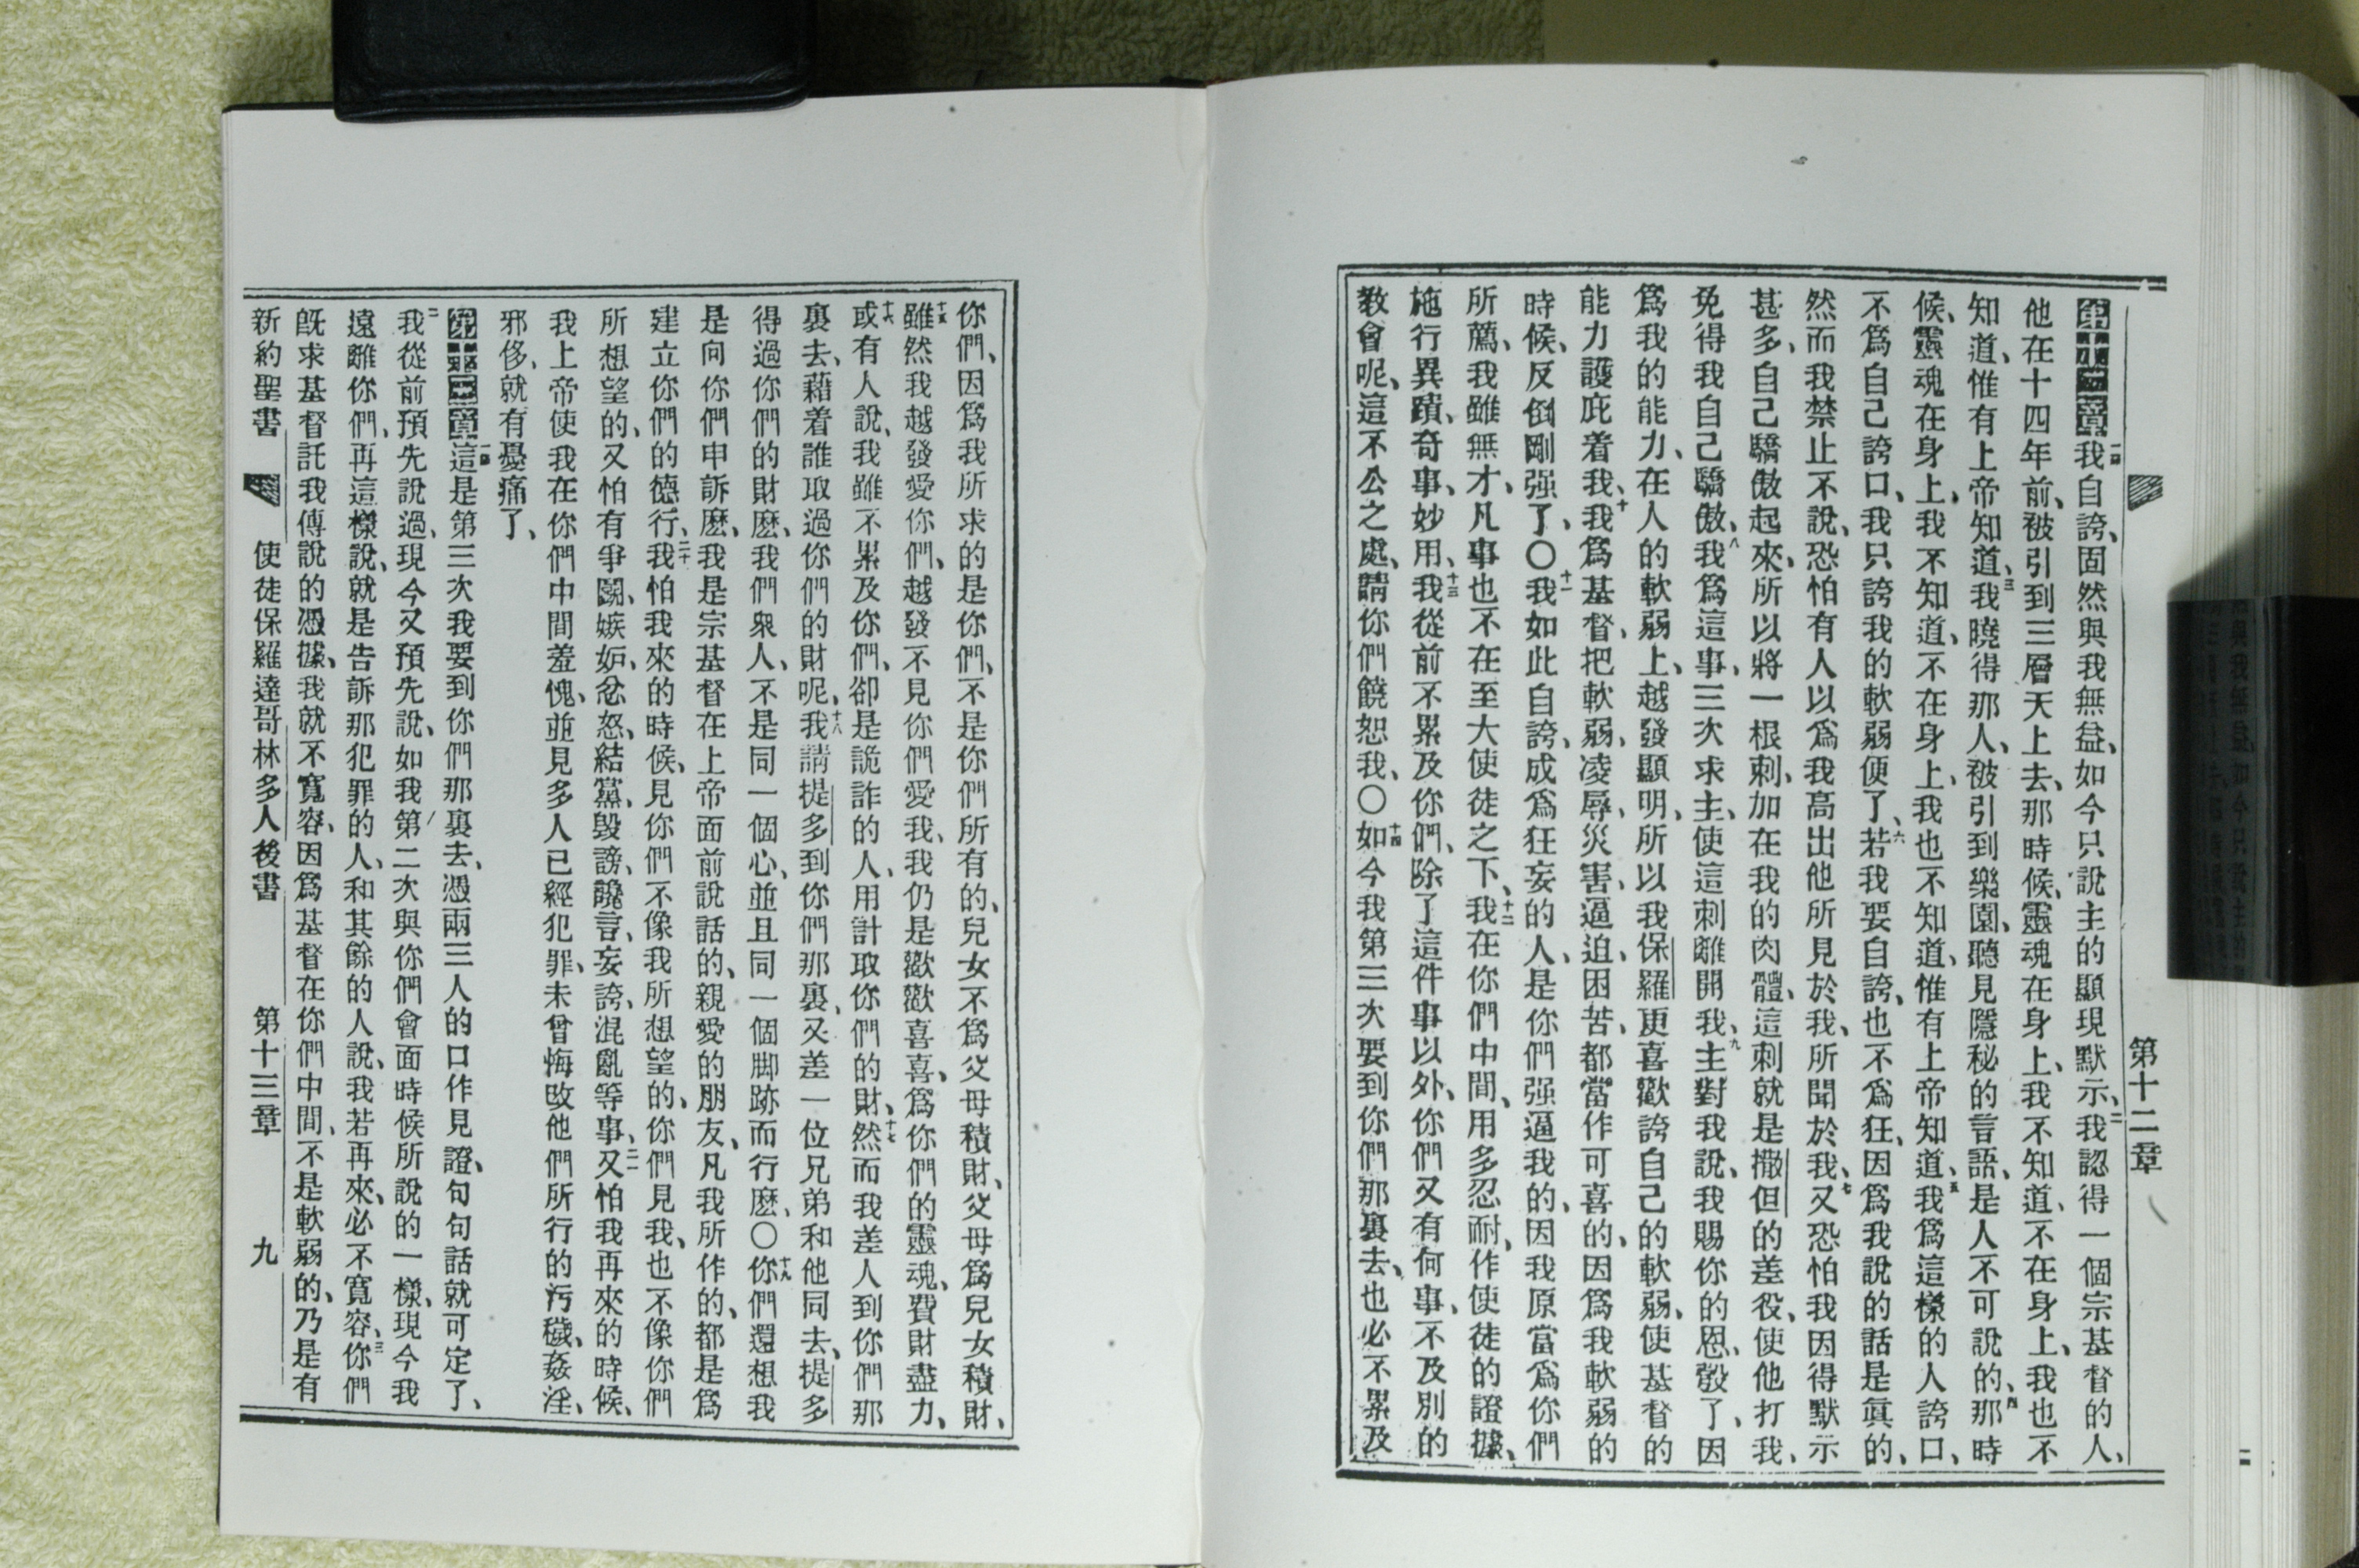 第十二章
第十二章一節我自誇、固然與我無益、如今只說主的顯現默示、二我認得一個宗基督的人、
他在十四年前、被引到三層天上去、那時候、靈魂在身上、我不知道、不在身上、我也不
知道、惟有上帝知道、三我曉得那人、被引到樂園、聽見隱秘的言語、是人不可說的、四那時
候、靈魂在身上、我不知道、不在身上、我也不知道、惟有上帝知道、五我爲這樣的人誇口、
不爲自己誇口、我只誇我的軟弱便了、六若我要自誇、也不爲狂、因爲我說的話是眞的、
然而我禁止不說、恐怕有人以爲我高出他所見於我、所聞於我、七又恐怕我因得默示
甚多、自己驕傲起來、所以將一根刺、加在我的肉體、這刺就是撒但的差役、使他打我、
免得我自己驕傲、八我爲這事、三次求主、使這刺離開我、九主對我說、我賜你的恩、彀了、因
爲我的能力、在人的軟弱上、越發顯明、所以我保羅更喜歡誇自己的軟弱、使基督的
能力護庇着我、十我爲基督、把軟弱、凌辱、災害、逼迫、困苦、都當作可喜的、因爲我軟弱的
時候、反倒剛强了、〇十一我如此自誇、成爲狂妄的人、是你們强逼我的、因我原當爲你們
所薦、我雖無才、凡事也不在至大使徒之下、十二我在你們中間、用多忍耐、作使徒的證據、
施行異蹟、奇事、妙用、十三我從前不累及你們、除了這件事以外、你們又有何事、不及別的
教會呢、這不公之處、請你們饒恕我、〇十四如今我第三次要到你們那裏去、也必不累及
你們、因爲我所求的是你們、不是你們所有的、兒女不爲父母積財、父母爲兒女積財、
十五雖然我越發愛你們、越發不見你們愛我、我仍是歡歡喜喜、爲你們的靈魂、費財盡力、
十六或有人說、我雖不累及你們、卻是詭詐的人、用計取你們的財、十七然而我差人到你們那
裏去、藉着誰取過你們的財呢、十八我請提多到你們那裏、又差一位兄弟和他同去、提多
得過你們的財麽、我們衆人、不是同一個心、並且同一個脚跡而行麽、〇十九你們還想我
是向你們申訴麽、我是宗基督在上帝面前說話的、親愛的朋友、凡我所作的、都是爲
建立你們的德行、二十我怕我來的時候、見你們不像我所想望的、你們見我、也不像你們
所想望的、又怕有爭鬭、嫉妒、忿怒、結黨、毀謗、讒言、妄誇、混亂等事、二一又怕我再來的時候、
我上帝使我在你們中間羞愧、並見多人已經犯罪、未曾悔改他們所行的污穢、姦淫、
邪侈、就有憂痛了、
第十三章一節這是第三次我要到你們那裏去、憑兩三人的口作見證、句句話就可定了、
二我從前預先說過、現今又預先說、如我第二次與你們會面時候所說的一樣、現今我
遠離你們、再這樣說、就是告訴那犯罪的人、和其餘的人說、我若再來、必不寬容、三你們
旣求基督託我傳說的憑據、我就不寬容、因爲基督在你們中間、不是軟弱的、乃是有
新約聖書 使徒保羅達哥林多人後書 第十三章 九